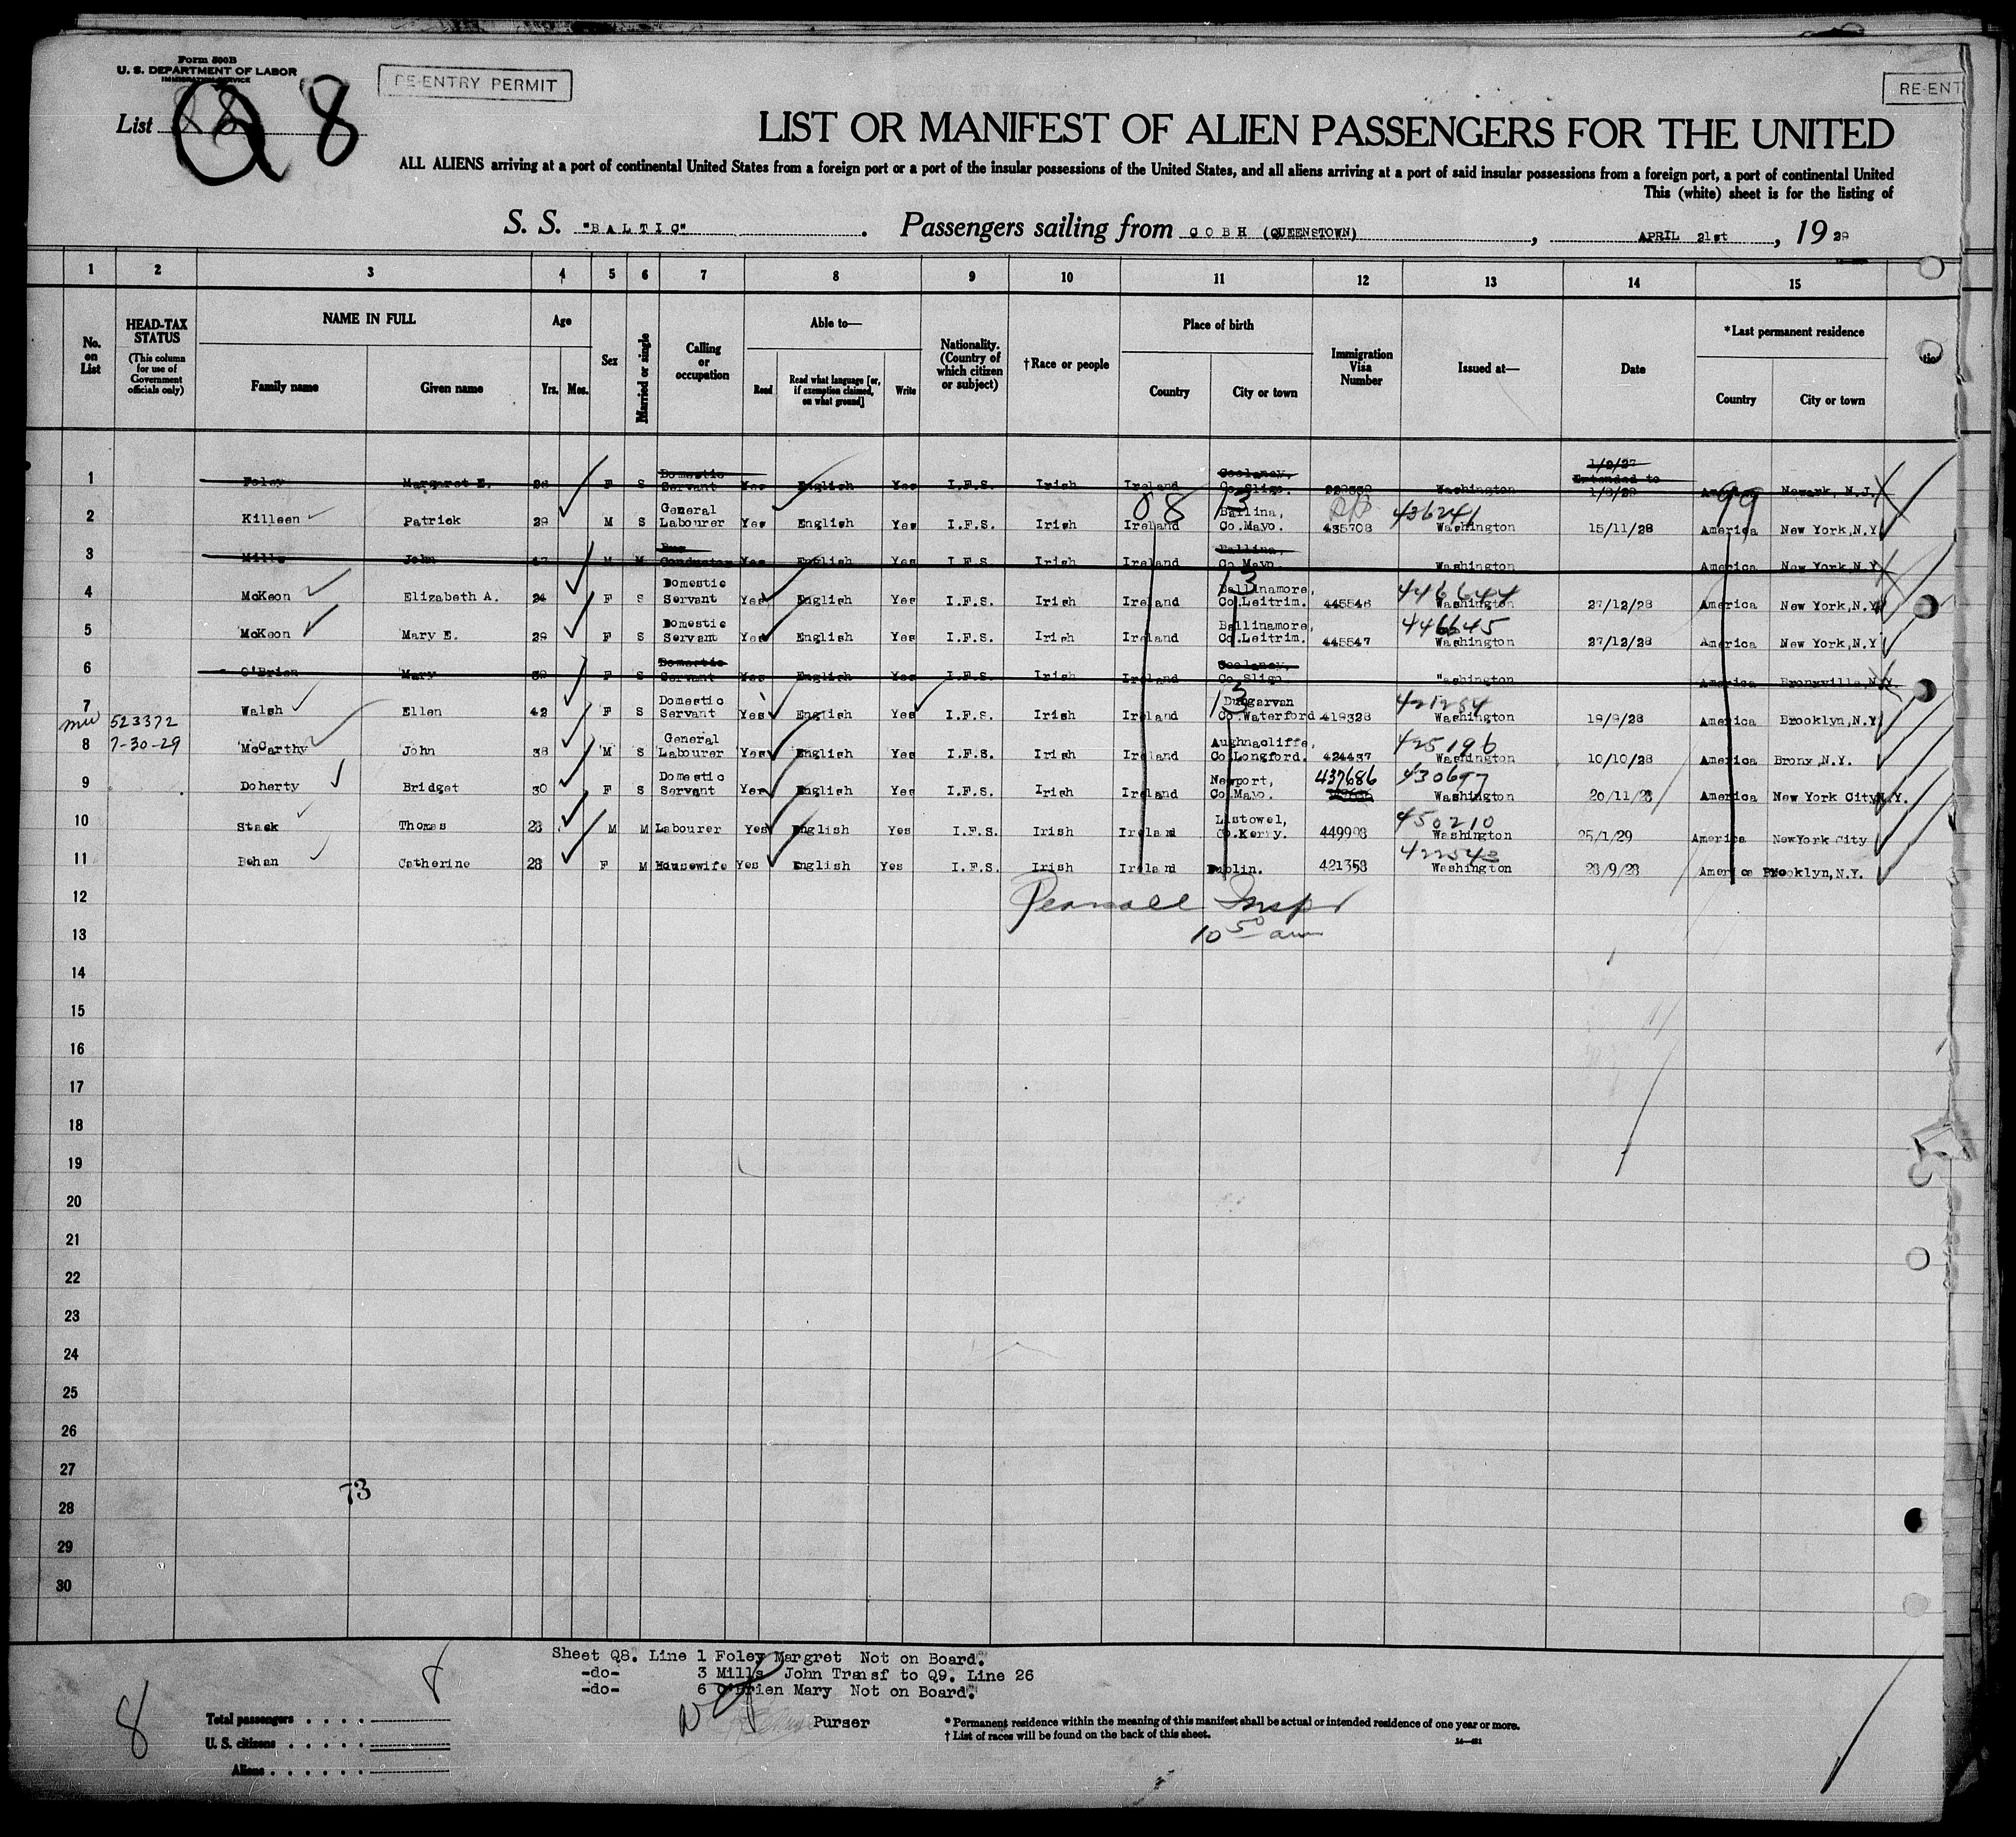 Form 500B
U. S. DEPARTMENT OF LABOR
IMMIGRATION SERVICE
RE-ENTRY PERMIT
RE-ENT
List Q 8
LIST OR MANIFEST OF ALIEN PASSENGERS FOR THE UNITED
ALL ALIENS arriving at a port of continental United States from a foreign port or a port of the insular possessions of the United States, and all aliens arriving at a port of said insular possessions from a foreign port, a port of continental United
This (white) sheet is for the listing of
S. S. "BALTIC". Passengers sailing from COBH (QUEENSTOWN), APRIL 21st, 1929
1 2 3 4 5 6 7 8 9 10 11 12 13 14 15
No. on List
HEAD-TAX STATUS (This column for use of Government officials only)
NAME IN FULL Family name Given name
Age Yrs. Mos.
Sex
Married or single
Calling or occupation
Able to— Read Read what language [or, if exemption claimed, on what ground] Write
Nationality. (Country of which citizen or subject)
†Race or people
Place of birth Country City or town
Immigration Visa Number
Issued at—
Date
*Last permanent residence Country City or town
1 Foley Margaret E. 26 F S Domestic Servant Yes English Yes I.F.S. Irish Ireland Coolaney, Co.Sligo. Washington 1/9/27 Extended to 1/9/29 America Newark, N.J.
2 Killeen Patrick 29 M S General Labourer Yes English Yes I.F.S. Irish Ireland Ballina, Co.Mayo. 435708 436241 Washington 15/11/28 America New York,N.Y.
08 13 99
3 Mills John M M Bus Conductor Yes English Yes I.F.S. Irish Ireland Ballina, Co.Mayo. Washington America New York,N.Y.
4 McKeon Elizabeth A. 24 F S Domestic Servant Yes English Yes I.F.S. Irish Ireland Ballinamore, Co.Leitrim. 445546 446644 Washington 27/12/28 America New York,N.Y.
5 McKeon Mary E. 29 F S Domestic Servant Yes English Yes I.F.S. Irish Ireland Ballinamore, Co.Leitrim. 445547 446645 Washington 27/12/28 America New York,N.Y.
6 O'Brien Mary F S Domestic Servant Yes English Yes I.F.S. Irish Ireland Coolaney, Co.Sligo. Washington America Bronxville,N.Y.
7 Walsh Ellen 42 F S Domestic Servant Yes English Yes I.F.S. Irish Ireland Dungarvan Co.Waterford 419328 421284 Washington 19/9/28 America Brooklyn,N.Y.
523372
7-30-29
8 McCarthy John 38 M S General Labourer Yes English Yes I.F.S. Irish Ireland Aughnacliffe, Co.Longford. 424437 425196 Washington 10/10/28 America Bronx,N.Y.
9 Doherty Bridget 30 F S Domestic Servant Yes English Yes I.F.S. Irish Ireland Newport, Co.Mayo. 437686 430697 Washington 20/11/28 America New York City,N.Y.
10 Stack Thomas 28 M M Labourer Yes English Yes I.F.S. Irish Ireland Listowel, Co.Kerry. 449998 450210 Washington 25/1/29 America NewYork City
11 Behan Catherine 28 F M Housewife Yes English Yes I.F.S. Irish Ireland Dublin. 421358 422543 Washington 28/9/28 America Brooklyn,N.Y.
12
Pearsall Inspr
13
10 50 am
14
15
16
17
18
19
20
21
22
23
24
25
26
27
28
73
29
30
Sheet Q8. Line 1 Foley Margret Not on Board.
-do- 3 Mills John Transf to Q9. Line 26
-do- 6 O'Brien Mary Not on Board.
Purser
8
Total passengers
U. S. citizens
Aliens
* Permanent residence within the meaning of this manifest shall be actual or intended residence of one year or more.
† List of races will be found on the back of this sheet.